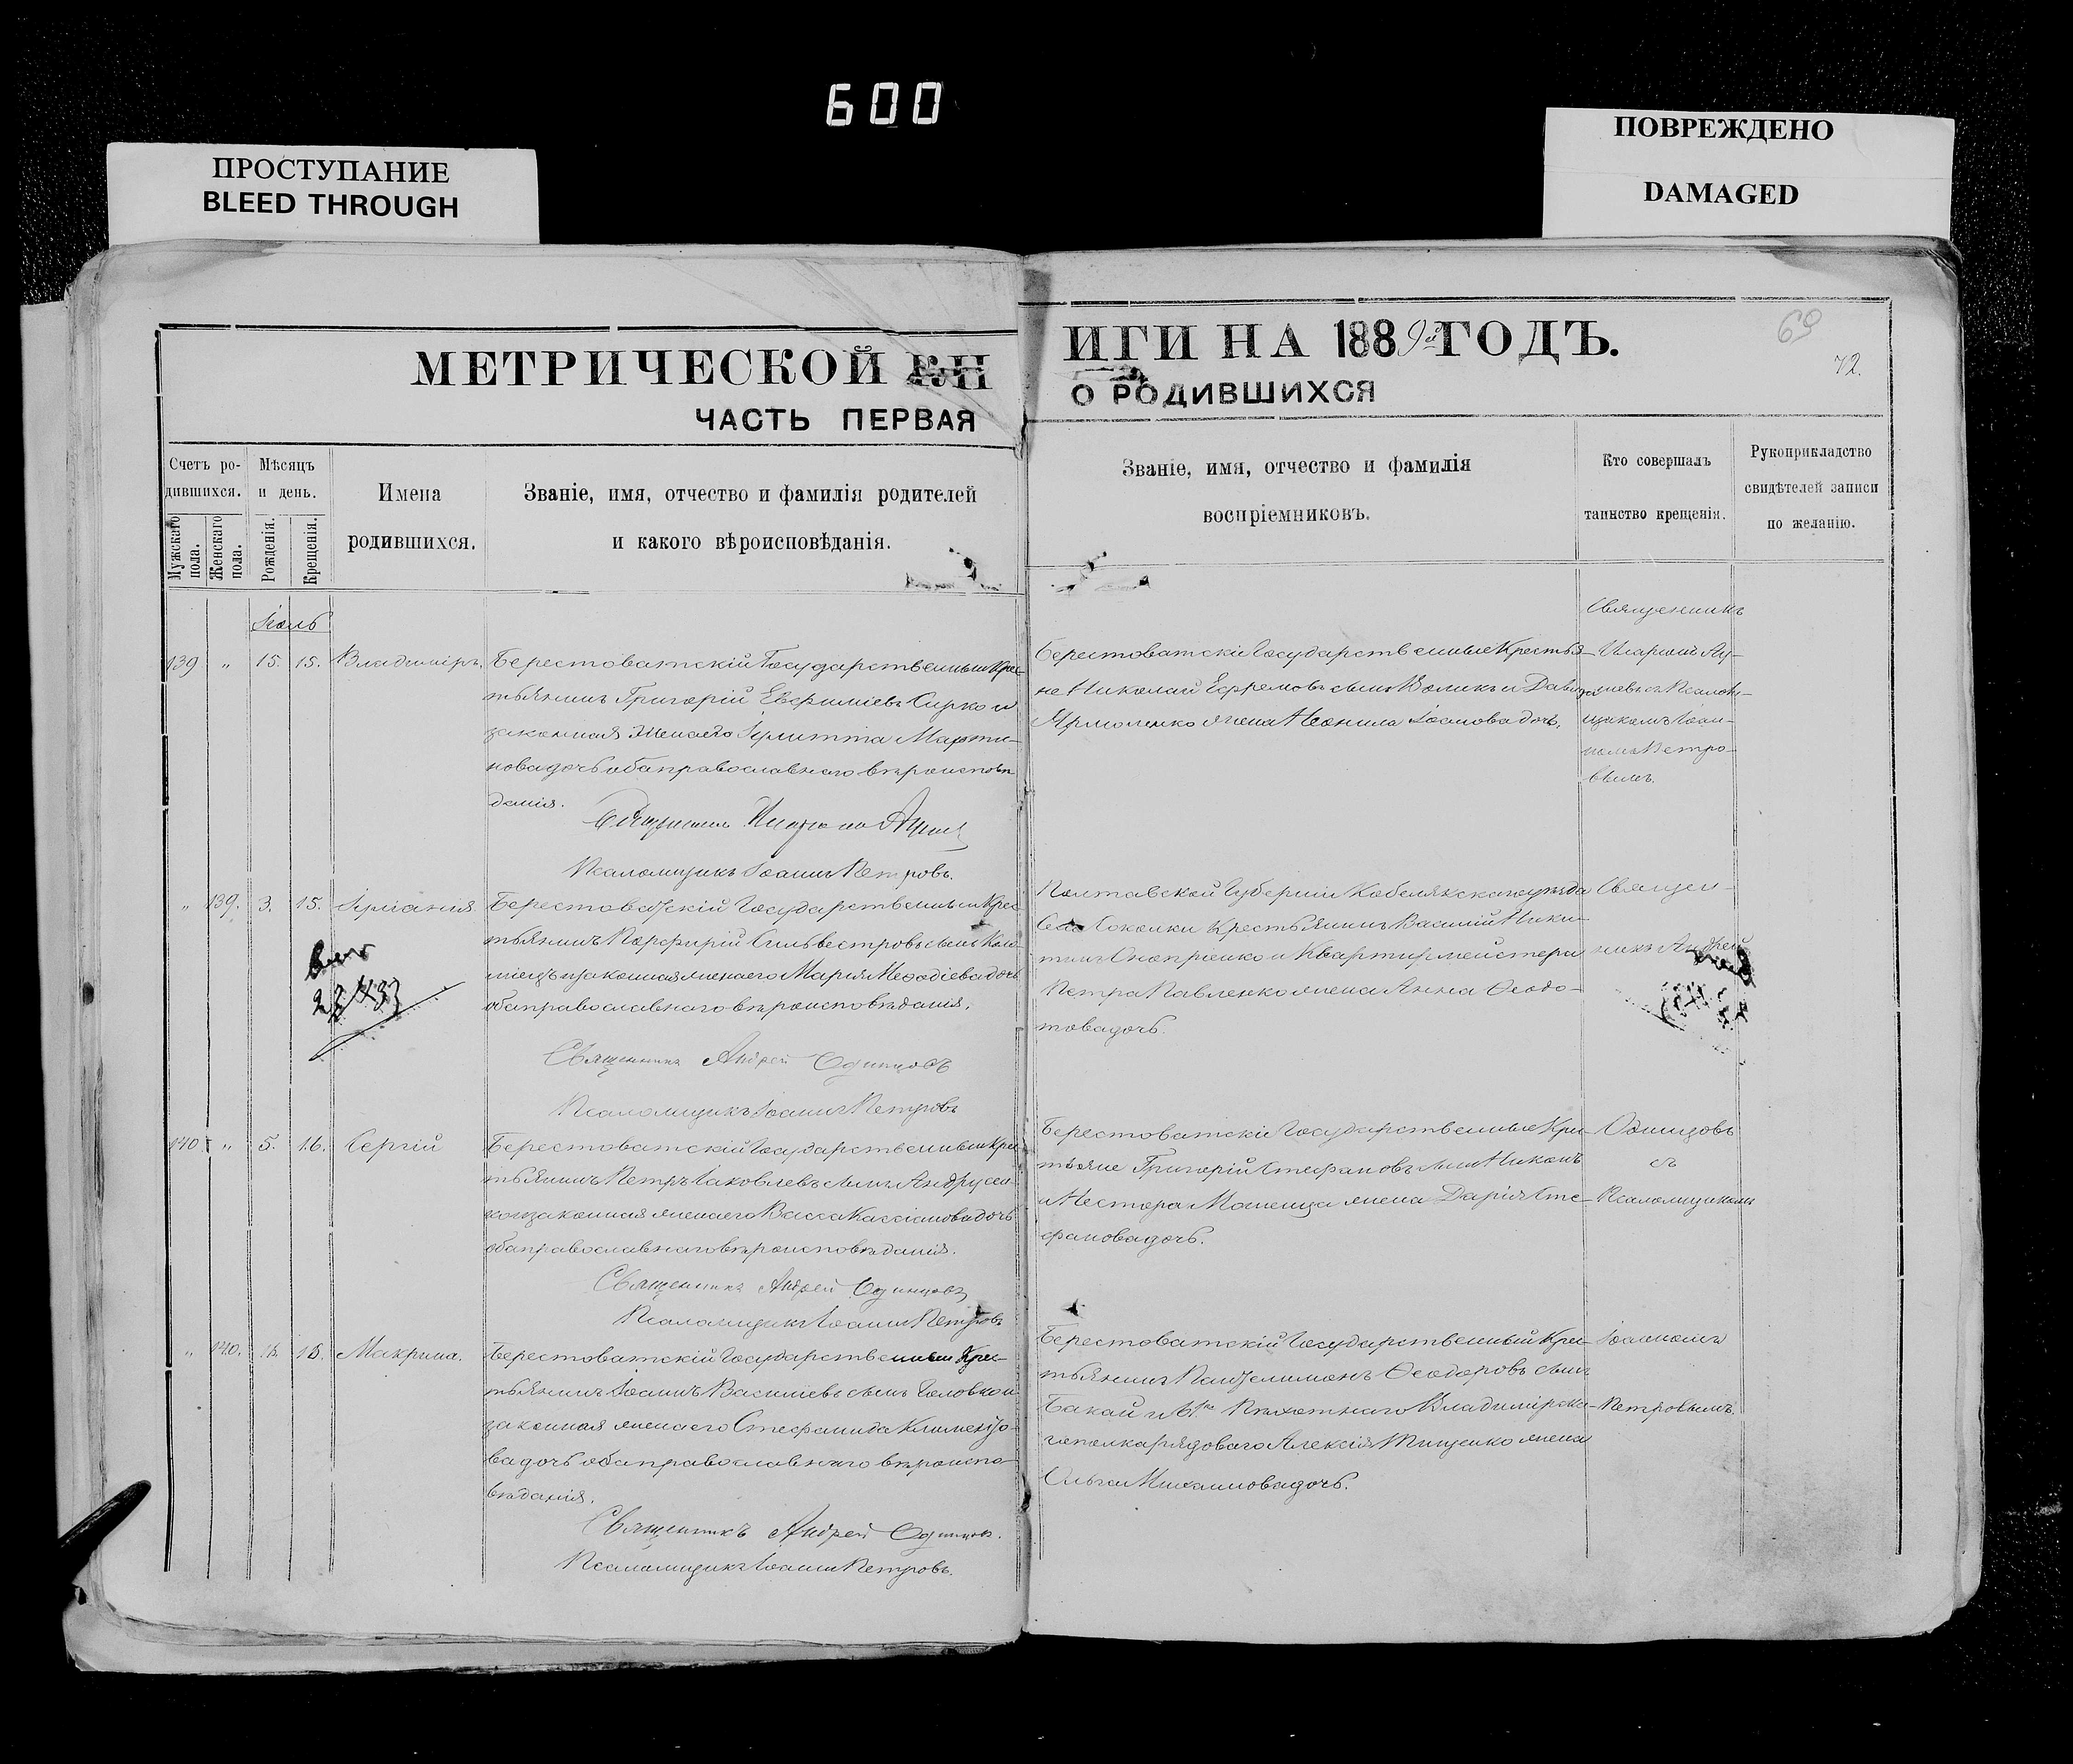 600
ПРОСТУПАНИЕ
BLEED THROUGH
ПОВРЕЖДЕНО
DAMAGED
МЕТРИЧЕСКОЙ КН
ИГИ НА 1889й ГОДЪ.
ЧАСТЬ ПЕРВАЯ
О РОДИВШИХСЯ
69
72.
Счетъ ро-
дившихся.
Мужскаго пола.
Женскаго пола.
Мѣсяцъ
и день.
Рожденія.
Крещенія.
Имена
родившихся.
Званіе, имя, отчество и фамилія родителей
и какого вѣроисповѣданія.
Званіе, имя, отчество и фамилія
воспріемниковъ.
Кто совершалъ
таинство крещенія.
Рукоприкладство
свидѣтелей записи
по желанію.
Іюль
139 " 15. 15. Владиміръ.
Берестоватскій Государственный Крес-
тьянинъ Григорій Евфиміевъ Сирко и
законная жена его Іулитта Марти-
нова дочь оба православнаго вѣроисповѣ-
данія.
Священникъ
Псаломщикъ Іоаннъ Петровъ.
Берестоватскіе Государственные Крестья-
не Николай Ефремовъ сынъ Воликъ и Давида
Ярмоленко жена Неонила Іоаннова дочь.
Священникъ
Иларіонъ
съ Псалом-
щикомъ Іоан-
номъ Петро-
вымъ.
" 139. 3. 15. Іуліанія.
Берестоватскій Государственный Крес-
тьянинъ Порфирій Сильвестровъ сынъ
и законная жена его Марія Меѳодіева дочь
оба православнаго вѣроисповѣданія.
Священникъ Андрей Одинцовъ
Псаломщикъ Іоаннъ Петровъ
Полтавской Губерніи Кобелякскаго уѣзда
Села Соколки Крестьянинъ Василій Ники-
тинъ Оноприенко и Квартирмейстера
Петра Павленко жена Анна Ѳеодо-
това дочь.
Священ-
никъ Андрей
140 " 5. 16. Сергій
Берестоватскій Государственный Крес-
тьянинъ Петръ Іаковлевъ сынъ Андрусен-
ко и законная жена его Васса Кассіанова дочь
оба православнаго вѣроисповѣданія.
Священникъ Андрей Одинцовъ
Псаломщикъ Іоаннъ Петровъ
Берестоватскіе Государственные Крес-
тьяне Григорій Стефановъ сынъ
и Нестора жена Дарія Сте-
фанова дочь.
Одинцовъ
съ
Псаломщикомъ
" 140. 18. 18. Макрина.
Берестоватскій Государственный Крес-
тьянинъ Іоаннъ Василіевъ сынъ Головко и
законная жена его Стефанида Клименто-
ва дочь оба православнаго вѣроиспо-
вѣданія.
Священникъ Андрей Одинцовъ.
Псаломщикъ Іоаннъ Петровъ.
Берестоватскій Государственный Крес-
тьянинъ Пантелимонъ Ѳеодоровъ сынъ
Бакай и Пѣхотнаго Владимірска-
го полка рядоваго Алексія Тищенко жена
Ольга дочь.
Іоанномъ
Петровымъ.